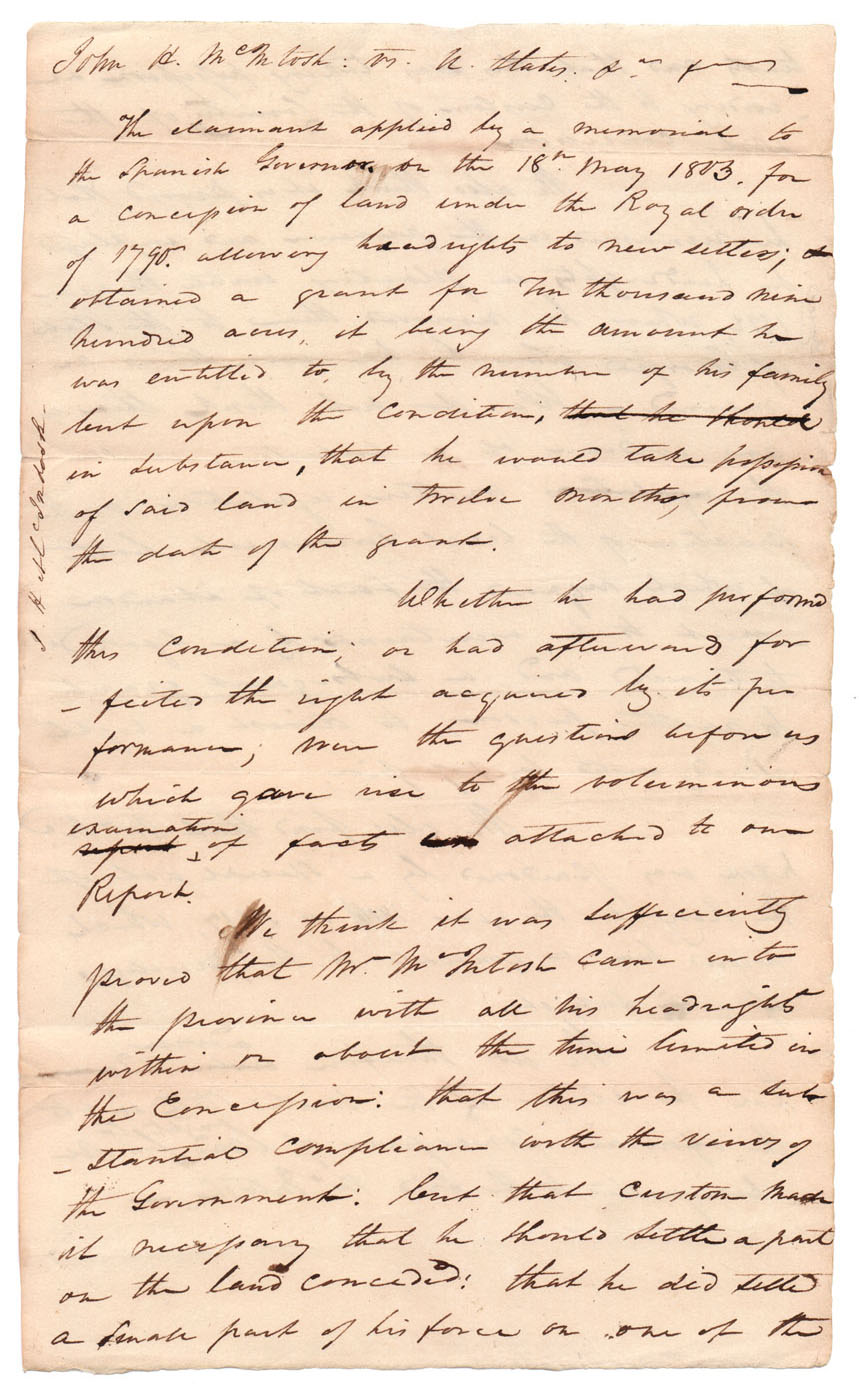 John H. McIntosh: vs. U. States.
The claimant applied by a memorial to
the Spanish Governor on the 18th May 1803. for
a concession of land under the Royal order
of 1790. allowing headrights to new settlers; &
obtained a grant for Ten thousand nine
hundred acres, it being the amount he
was entitled to, by the number of his family
but upon the condition, that he should
in substance, that he would take possession
of said land in twelve months, from
the date of the grant.
Whether he had performed
this condition; or had afterward for
-feited the right acquired by its per
formance; were the questions before us
which gave rise to the voluminous
examination
report of facts attached to our
Report.
We think it was sufficiently
proved that Mr. McIntosh came into
the province with all his headrights
within or about the time limited in
the Concession: that this was a sub
-stantial compliance with the views of
the Government: but that custom made
it necessary that he should settle a part
on the land conceded: that he did settle
a small part of his force on one of the
J. H. McIntosh